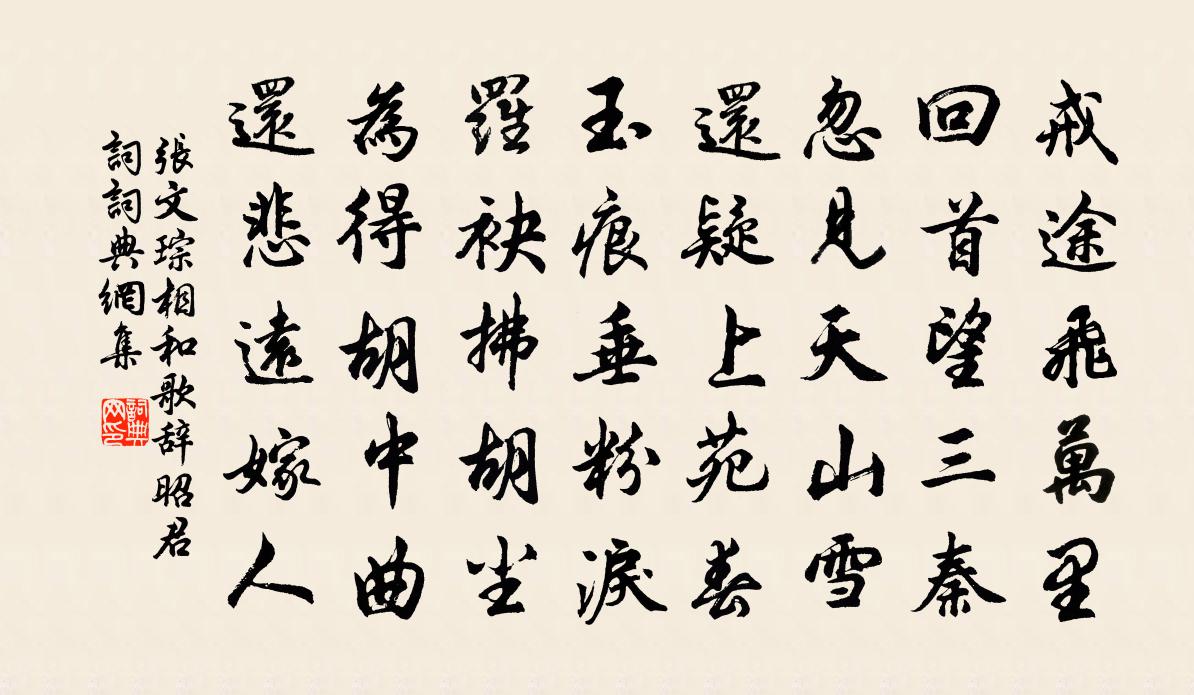 戒途飛萬里
回首望三秦
忽見天山雪
還疑上苑春
玉痕垂粉淚
羅袂拂胡尘
為得胡中曲
還悲遠嫁人
張文琮相和歌辞昭君
詞詞典網集
詞典网印